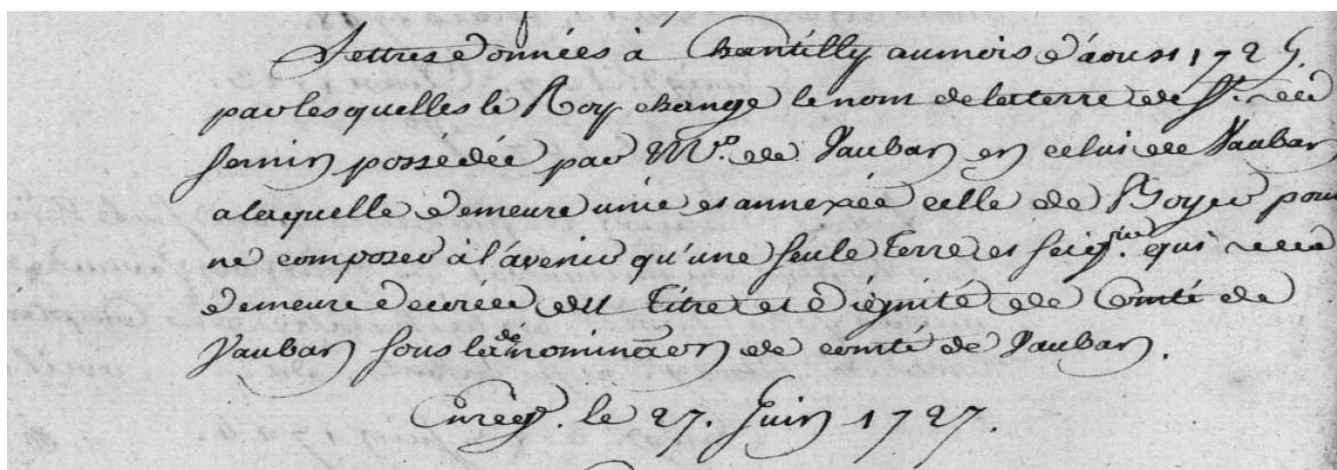 Lettres données à Chantilly au mois d'aoust 1725.
par lesquelles le Roy change le nom de la terre de St.
sernin possédée par Mr. de Vauban en celui de Vauban
a laquelle demeure unie et annexée celle de Boyer pour
ne composer à l'avenir qu'une seule terre et seigrie. qui
demeure decorée du titre et dignité de Comté de
Vauban sous la dénominaon de comté de Vauban.
Enreg. le 27. Juin 1727.